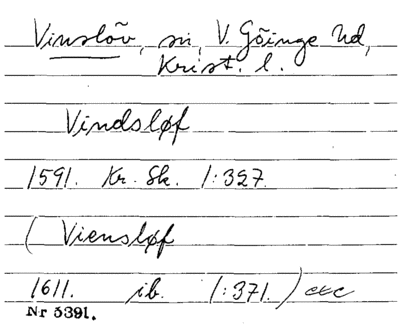 Vinslöv, sn, V. Göinge hd,
Krist. l.
Vindsløf
1591. Kr. Sk. 1:327.
( Viensløf
1611. ib. 1:371. ) etc
Nr 5391.